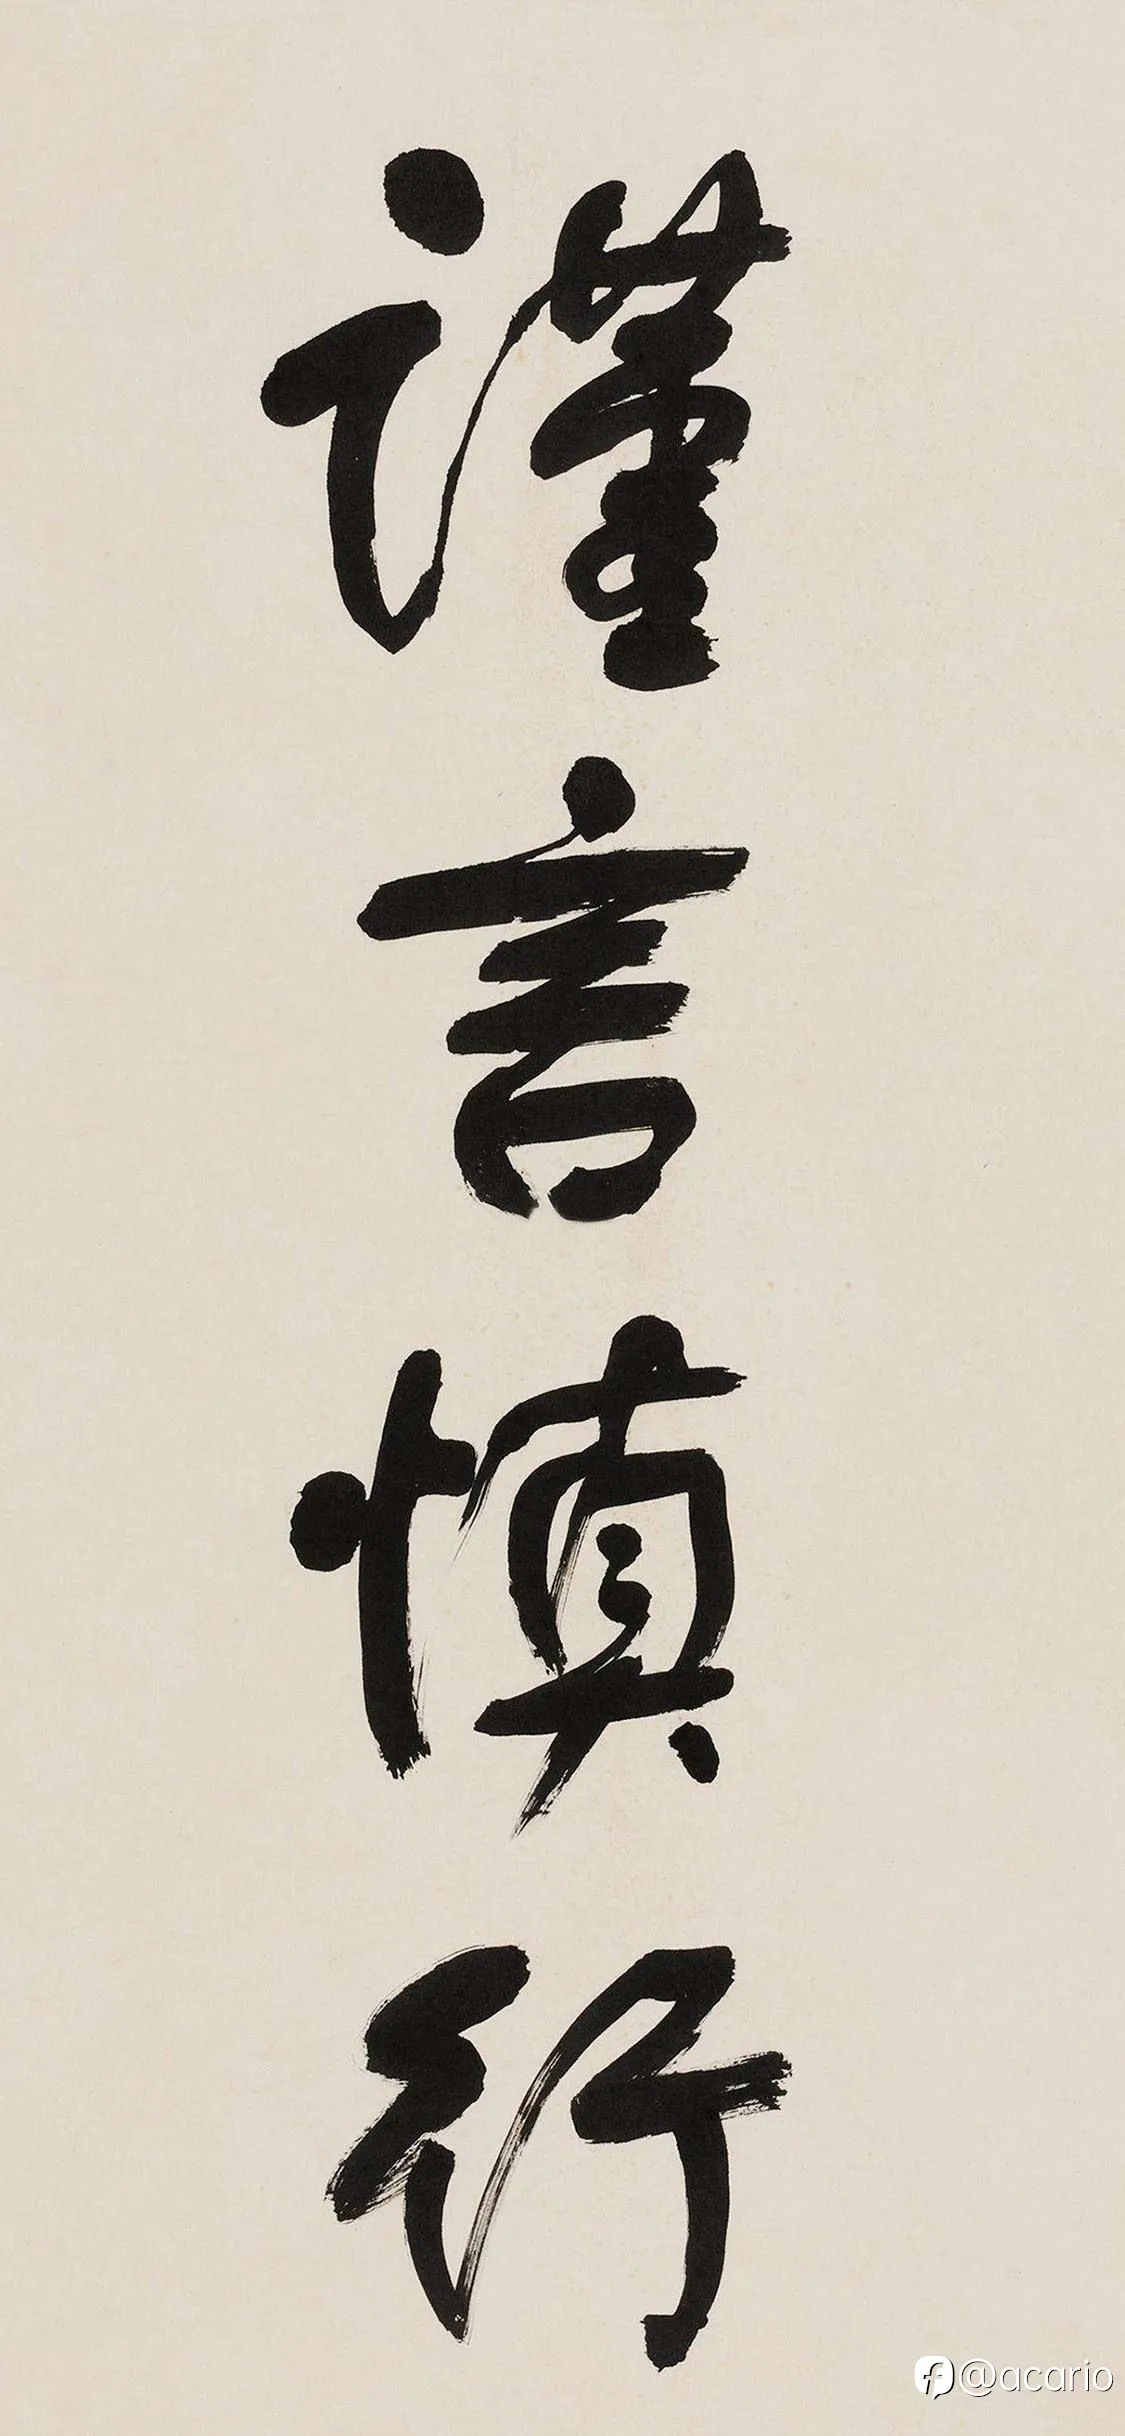 謹言慎行
@acario